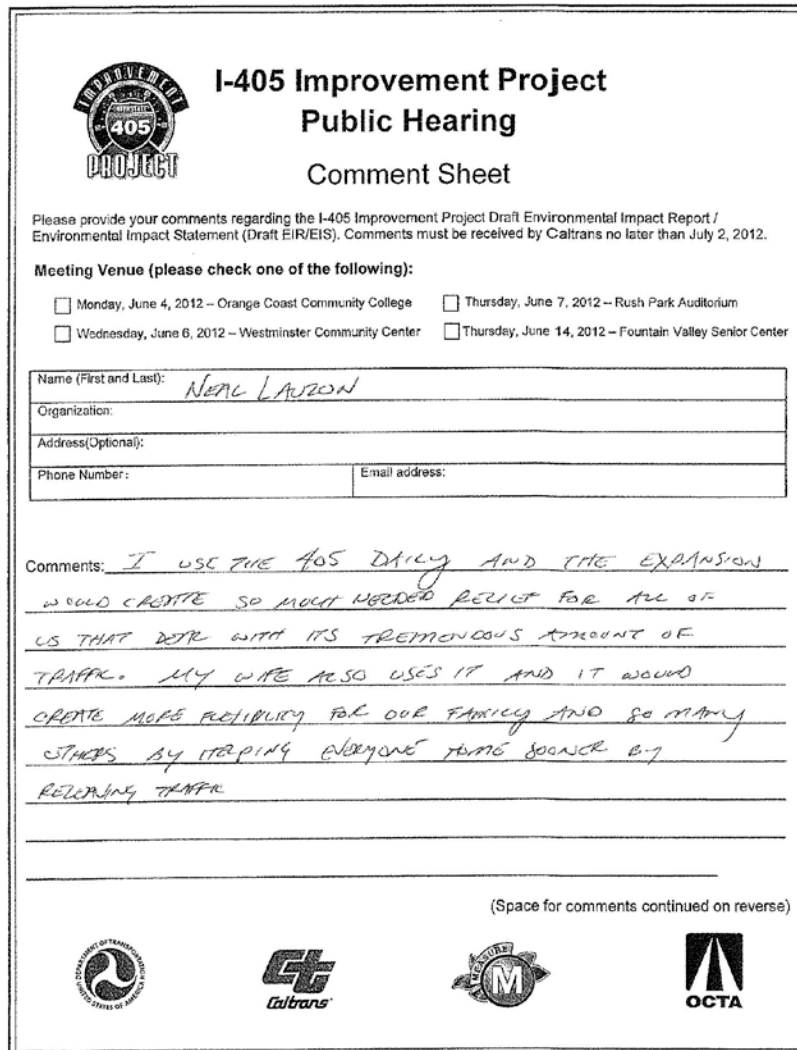 IMPROVEMENT
INTERSTATE
405
PROJECT
I-405 Improvement Project
Public Hearing
Comment Sheet
Please provide your comments regarding the I-405 Improvement Project Draft Environmental Impact Report /
Environmental Impact Statement (Draft EIR/EIS). Comments must be received by Caltrans no later than July 2, 2012.
Meeting Venue (please check one of the following):
Monday, June 4, 2012 – Orange Coast Community College
Thursday, June 7, 2012 – Rush Park Auditorium
Wednesday, June 6, 2012 – Westminster Community Center
Thursday, June 14, 2012 – Fountain Valley Senior Center
Name (First and Last): NEAL LAUZON
Organization:
Address(Optional):
Phone Number:
Email address:
Comments: I USE THE 405 DAILY AND THE EXPANSION
WOULD CREATE SO MUCH NEEDED RELIEF FOR ALL OF
US THAT DEAL WITH ITS TREMENDOUS AMOUNT OF
TRAFFIC. MY WIFE ALSO USES IT AND IT WOULD
CREATE MORE FLEXIBILITY FOR OUR FAMILY AND SO MANY
OTHERS BY HELPING EVERYONE HOME SOONER BY
TRAFFIC
(Space for comments continued on reverse)
DEPARTMENT OF TRANSPORTATION
UNITED STATES OF AMERICA
Ct
Caltrans
MEASURE
M
OCTA